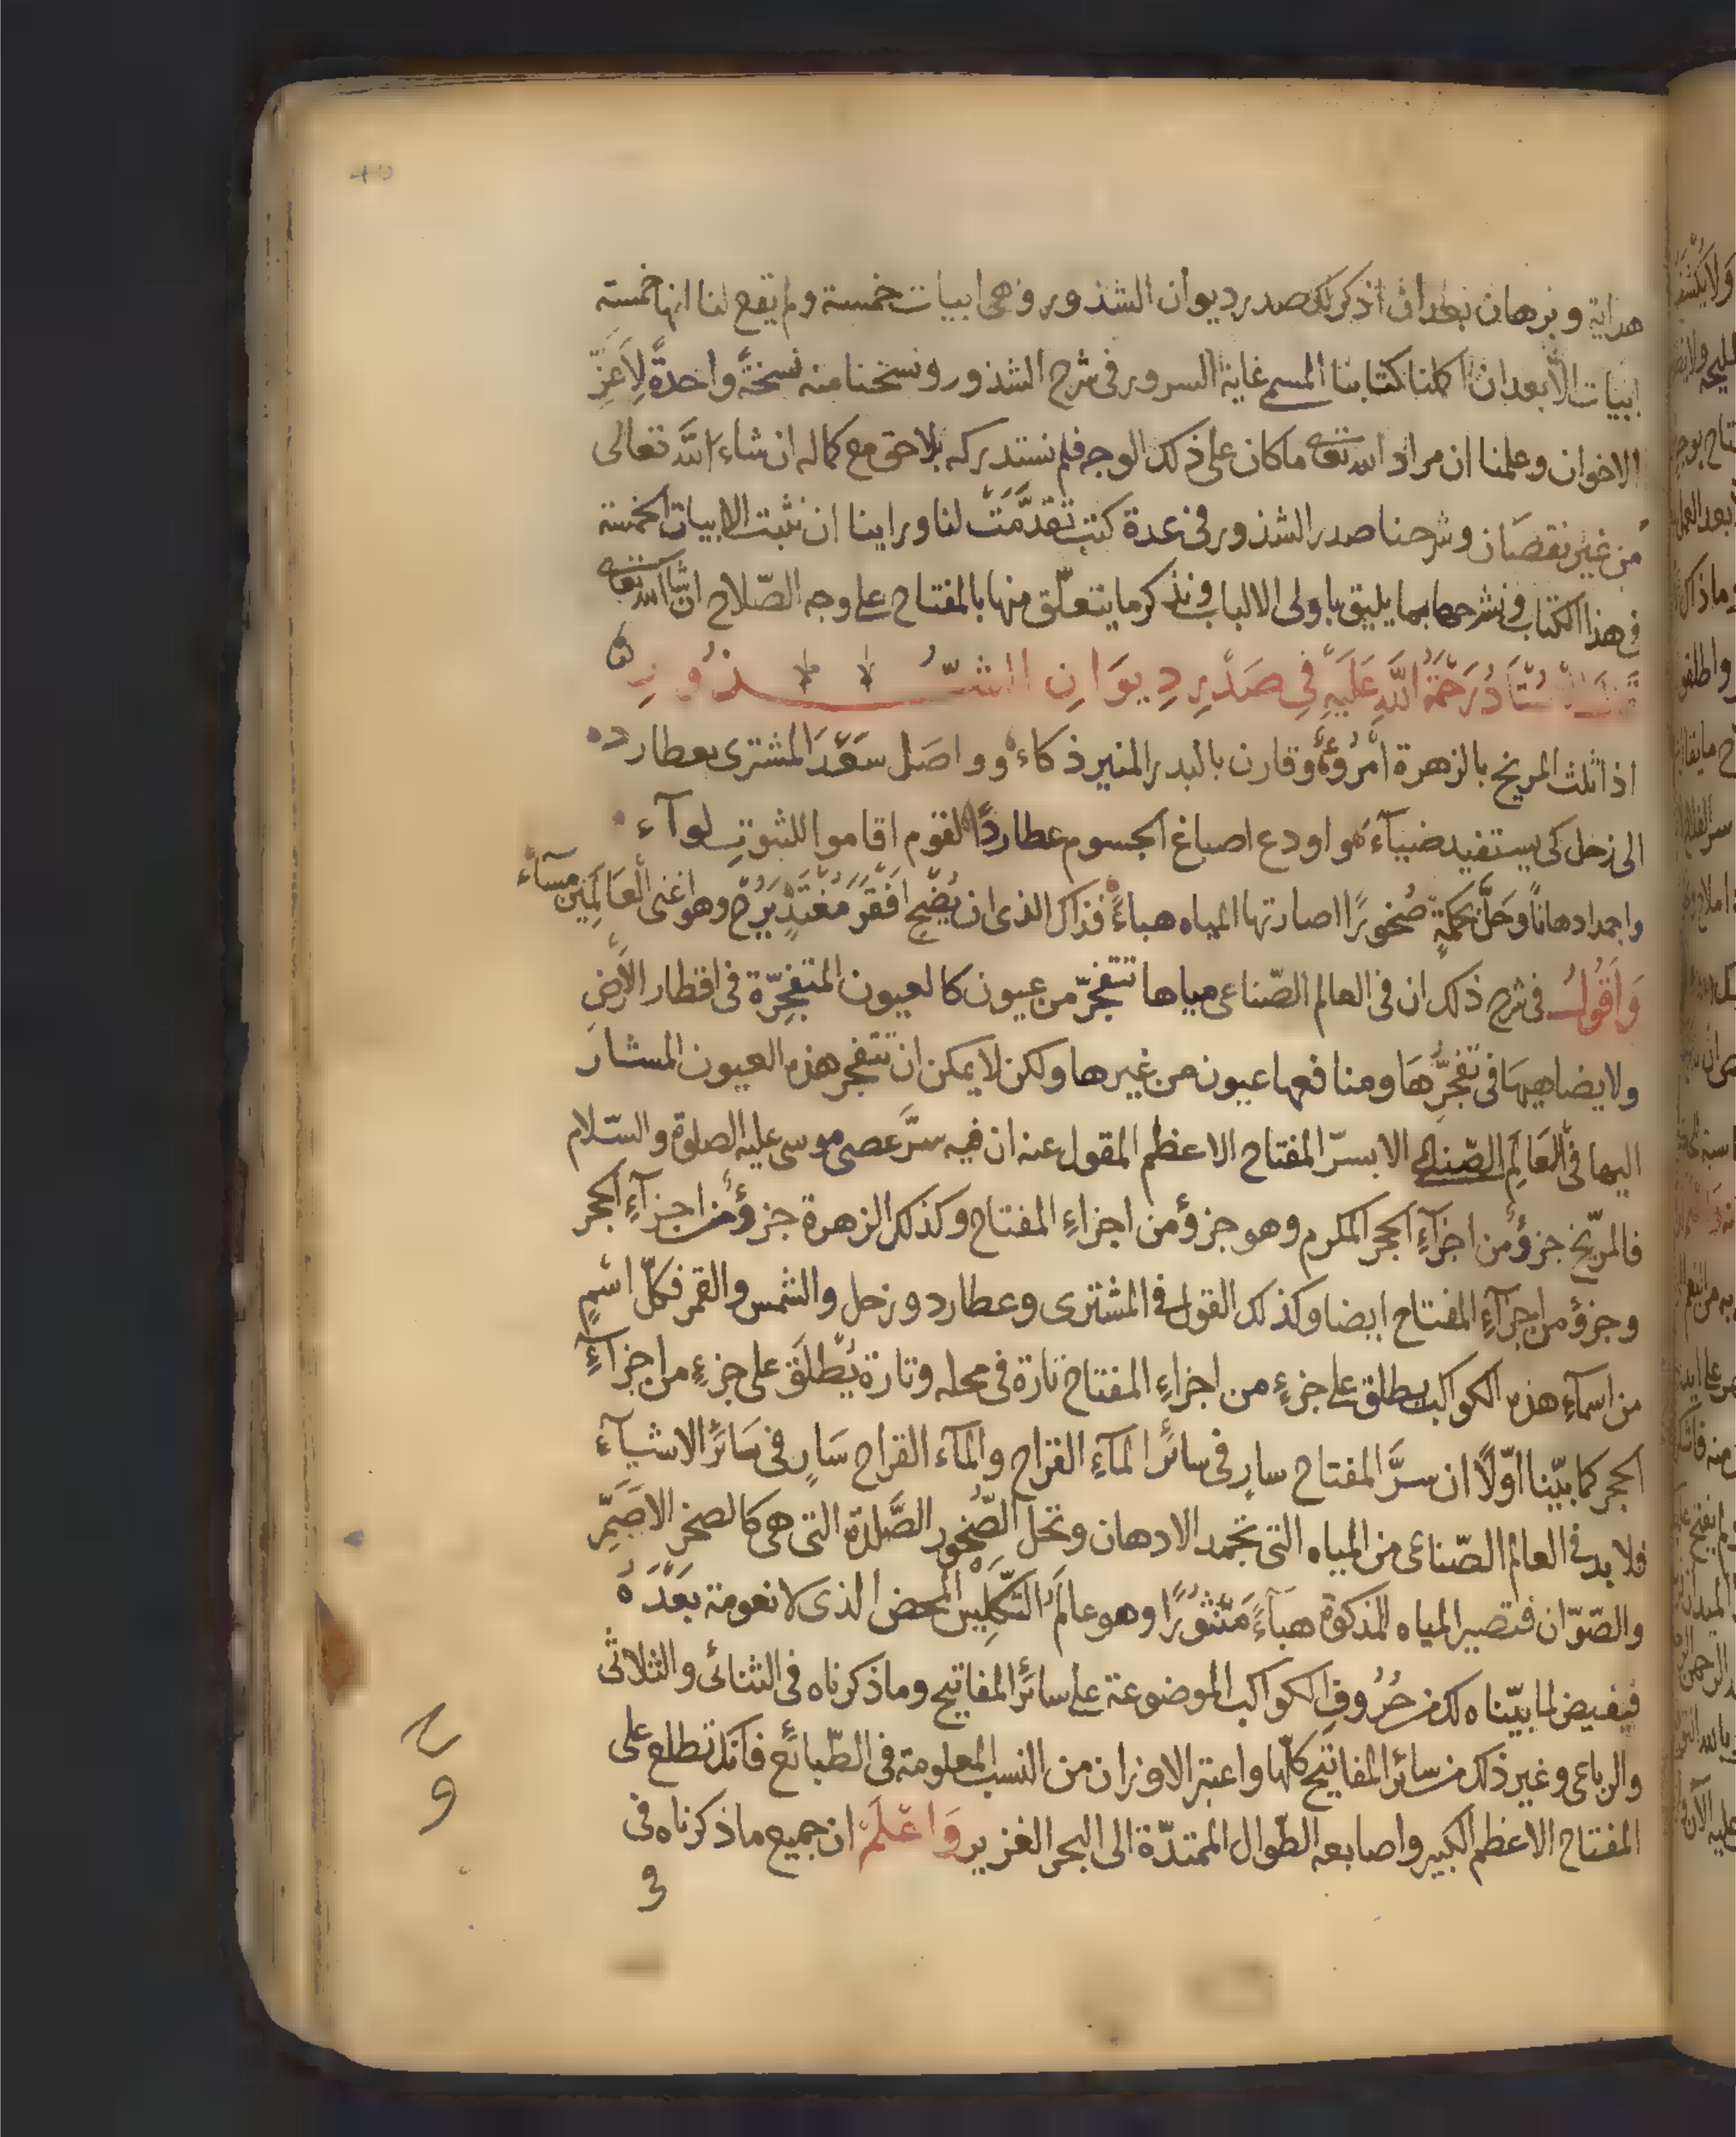 هداية وبرهان بعد ان اذكر لك صدر ديوان الشذور وهى ابيات خمسة ولم يقع لنا انها خمسة
ابيات الّا بعد ان اكملنا كتابنا المسمى غاية السرور فى شرح الشذور ونسخنا منه نسخةً واحدةً لِاَعَزّ
الاخوان وعلمنا ان مراد الله تعالى ما كان على ذلك الوجه فلم نستدركه بلاحق مع كماله ان شاء الله تعالى
من غير نقصَان وشرحنا صدر الشذور فى عدة كتب تقدَّمَتْ لنا وراينا ان نثبت الابيات الخمسة
فى هذا الكتاب ونشرحها بما يليق باولى الالباب ونذكر ما يتعلّق منها بالمفتاح على وجه الصّلاح ان شاء الله تعالى
الاُسْتَادُ رَحْمَةُ اللهِ عَلَيْهِ فِى صَدْرِ دِيوَانِ الشُّذُورِ
اذا ثلث المريخ بالزهرة امْرُؤٌ وقارن بالبدر المنير ذكاءه وواصَل سَعْدَ المشترى بعطارد
الى زحل كى يستفيد ضياءه واودع اصباغ الجسوم عطاردًا لقوم اقاموا للثبوت لوآء
واجمد ادهانًا وحَلَّ بحكمةٍ صُخورًا اصارتها المياه هباءً فذاك الذى ان يُصْبِحْ افْقَرَ مُغْتَدٍ يَرُحْ وهو اغنى العَالَمِين مسآء
وَاَقُولُ فى شرح ذلك ان فى العالم الصّناعى مياها تتفجرّ من عيون كالعيون المتفجِّرة فى اقطار الاَرض
ولا يضاهيهَا فى تفجُّرِهَا ومنافعها عيون من غيرها ولكن لا يمكن ان تتفجر هذه العيون المشار
اليها فى العَالَمِ الصّناعى الا بسرّ المفتاح الاعظم المقول عنه ان فيه سرَّ عصى موسى عليه الصلوة والسّلام
فالمرّيخ جزؤٌ من اجزآءِ الحجر المكرم وهو جزؤ من اجزاءِ المفتاح وكذلك الزهرة جزؤٌ من اجزآءِ الحجر
وجزؤ من اجزآءِ المفتاح ايضا وكذلك القول فى المشترى وعطارد وزحل والشمس والقمر فكلّ اسْمٍ
من اسمآءِ هذه الكواكب يطلق على جزءٍ من اجزاءِ المفتاح تارة فى محله وتارة يُطْلَقَ على جزءٍ من اجزآءِ
الحجر كما بيّنا اوّلاً ان سرَّ المفتاح سارٍ فى سائر المآءِ القراح والمآء القراح سَارٍ فى سَائر الاشيآء
فلا بد فى العالم الصّناعى من المياه التى تجمد الادهان وتحل الصُّخور الصَّلدة التى هى كالصخر الاَصَمِّ
والصّوّان فتصير المياه المذكورة هبآءً مَنْثوْرًا وهو عالَمُ التكليس المحض الذى لا نعومة بَعْدَهُ
فيفيض لما بيّناه لك من حُرُوفِ الكواكب الموضوعة على سائر المفاتيح وما ذكرناه فى الثنائى والثلاثى
والرباعى وغير ذلك من سائر المفاتيح كلّها واعتبر الاوزان من النسب المعلومة فى الطّبائع فانك تطلع على
المفتاح الاعظم الكبير واصابعه الطّوال الممتدّة الى البحر الغزير وَاعْلَمْ ان جميع ما ذكرناه فى
فى